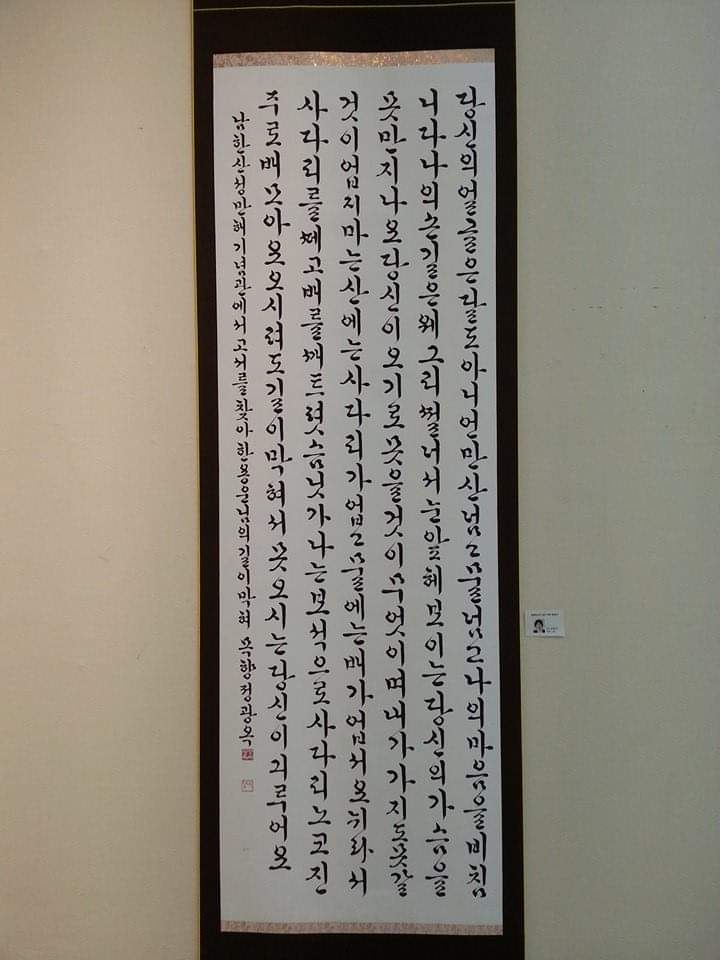 당신의얼골은달도아니언만산넘고물넘고나의마음을비침
니다나의손길은웨그리ᄶᅥᆯ너서눈압헤보이는당신의가슴을
못만지나요당신이오기로못올것이무엇이며내가가지도못갈
것이업지마는산에는사다리가업고물에는배가업서요뉘라서
사다리를ᄯᅦ고배를ᄭᅢ트렷슴닛가나는보석으로사다리노코진
주로배모아요오시려도길이막혀서못오시는당신이긔루어요
남한산성만해기념관에서고서를찾아한용운님의길이막혀 목향정광옥